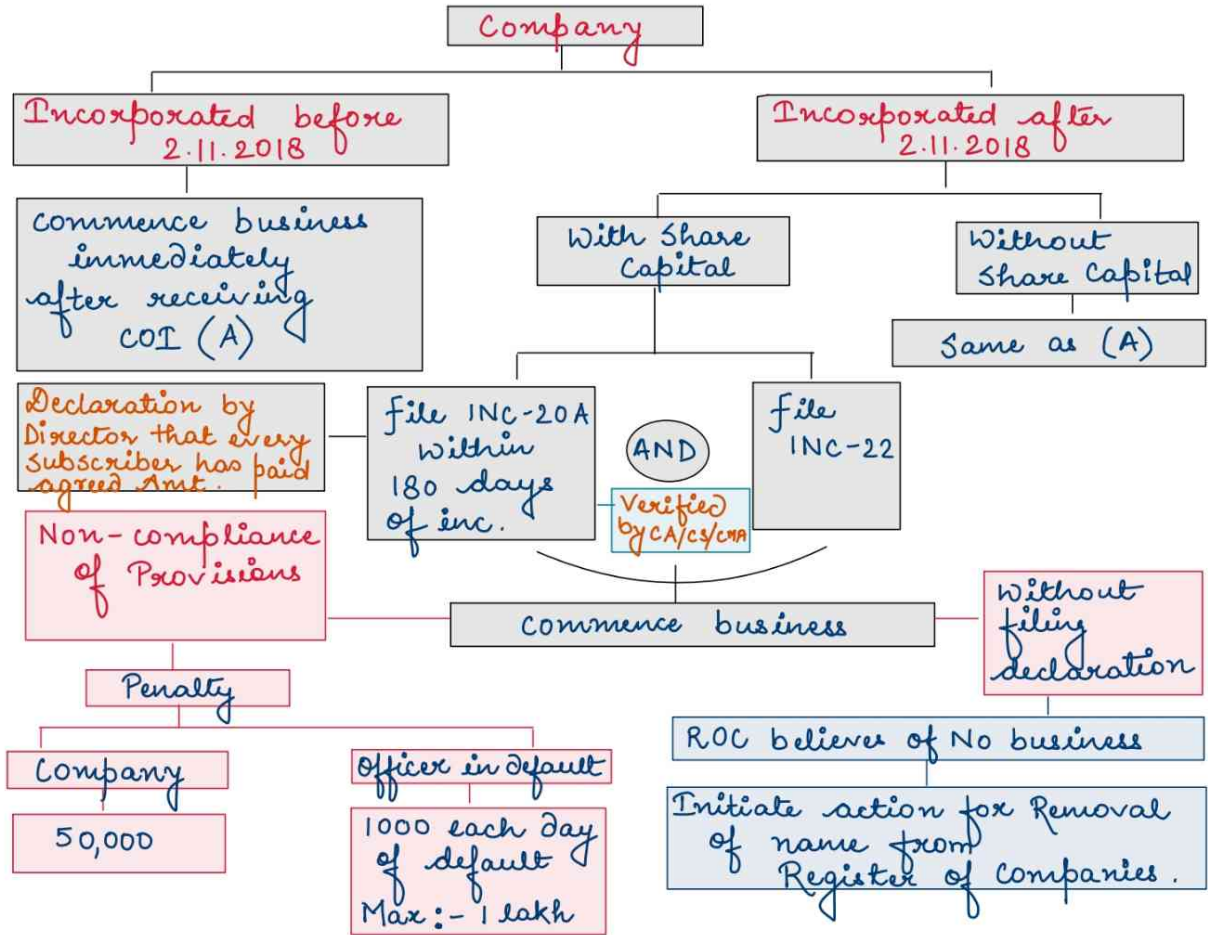 Company
Incorporated before
2.11.2018
Incorporated after
2.11.2018
commence business
immediately
after receiving
COI (A)
With Share
Capital
Without
Share Capital
Same as (A)
Declaration by
Director that every
subscriber has paid
agreed Amt.
file INC-20A
within
180 days
of inc.
AND
Verified
by CA/CS/CMA
file
INC-22
Non-compliance
of Provisions
commence business
Without
filing
declaration
Penalty
Company
50,000
Officer in default
1000 each day
of default
Max :- 1 lakh
ROC believes of No business
Initiate action for Removal
of name from
Register of Companies.